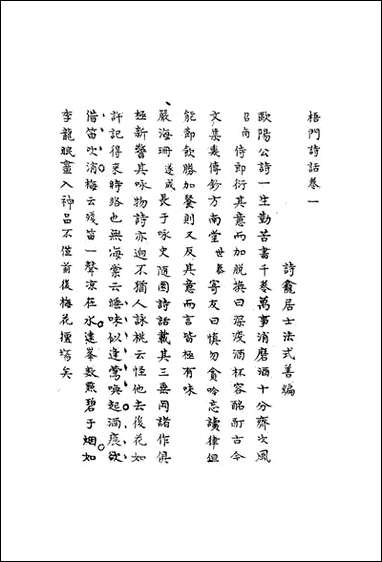 梧門詩話卷一
詩龕居士法式善編
歐陽公詩一生勤苦書千卷萬事消磨酒十分齊次風
召南侍郎衍其意而加脫換曰深沒酒杯容酩酊古今
文集裏傳鈔方南堂世泰寄友曰慎勿貪吟忘讀律但
能卻飲勝加餐則又反其意而言皆極有味
嚴海珊遂成長于咏史隨園詩話載其三垂岡諸作俱
極新警其咏物詩亦迥不猶人詠桃云怪他去後花如
許記得來時路也無海棠云睡味似逢鶯喚起濁痕欲
借笛吹消梅云殘笛一聲涼在水遠峯數點碧于烟如
李龍眠畫入神品不僅前後梅花擅場矣